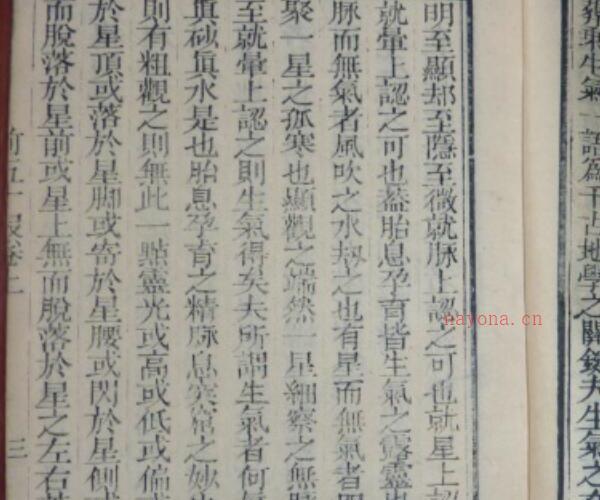 乘生氣一語爲千古地學之關鍵夫生氣之
明至顯却至隱至微就脉上認之可也就星上認
就暈上認之可也蓋胎息孕育皆生氣之露靈也
脉而無氣者風吹之水刼之也有星而無氣者
聚一星之孤寒也顯觀之端然一星細察之無
至就暈上認之則生氣得矣夫所謂生氣者何氣
眞砂眞水是也胎息孕育之精脉息
之妙也
則有粗觀之則無此一點靈光或高或低或偏或
於星頂或落於星脚或寄於星腰或閃於星側或
而脫落於星前或星上無而脫落於星之左右
三
nayona.cn